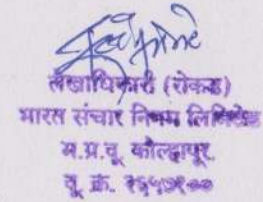 लेखाधिकारी (रोकड)
भारत संचार निगम लिमिटेड
म.प्र.दू. कोल्हापूर.
दू. क्र.